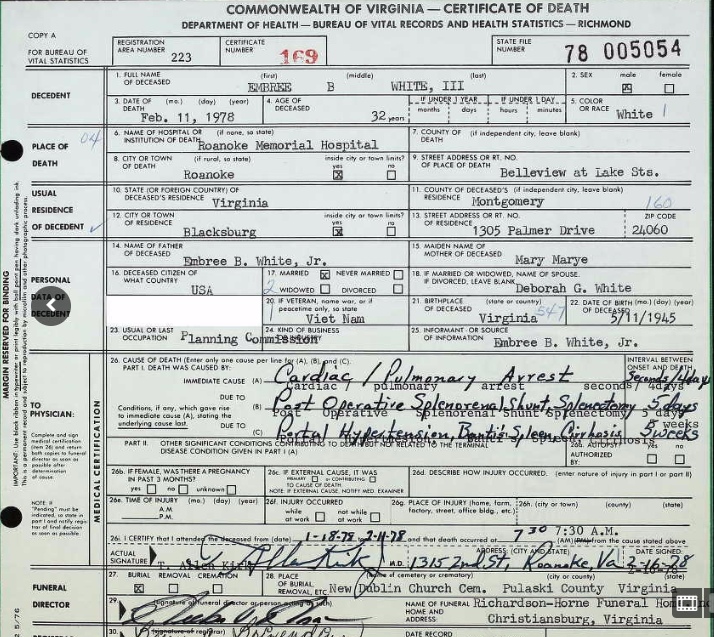 COMMONWEALTH OF VIRGINIA — CERTIFICATE OF DEATH
DEPARTMENT OF HEALTH — BUREAU OF VITAL RECORDS AND HEALTH STATISTICS — RICHMOND
COPY A
FOR BUREAU OF VITAL STATISTICS
REGISTRATION AREA NUMBER 223
CERTIFICATE NUMBER 169
STATE FILE NUMBER 78 005054
DECEDENT
1. FULL NAME OF DECEASED (first) (middle) (last)
EMBREE B WHITE, III
2. SEX male ☒ female ☐
3. DATE OF DEATH (mo.) (day) (year)
Feb. 11, 1978
4. AGE OF DECEASED 32 years
IF UNDER 1 YEAR months days
IF UNDER 1 DAY hours minutes
5. COLOR OR RACE White 1
PLACE OF DEATH
04
6. NAME OF HOSPITAL OR INSTITUTION OF DEATH (if none, so state)
Roanoke Memorial Hospital
7. COUNTY OF DEATH (if independent city, leave blank)
8. CITY OR TOWN OF DEATH (if rural, so state) inside city or town limits? yes ☒ no ☐
Roanoke
9. STREET ADDRESS OR RT. NO. OF PLACE OF DEATH
Belleview at Lake Sts.
USUAL RESIDENCE OF DECEDENT
10. STATE (OR FOREIGN COUNTRY) OF DECEASED'S RESIDENCE
Virginia
11. COUNTY OF DECEASED'S RESIDENCE (if independent city, leave blank)
Montgomery 160
12. CITY OR TOWN OF RESIDENCE inside city or town limits? yes ☒ no ☐
Blacksburg
13. STREET ADDRESS OR RT. NO. OF RESIDENCE
1305 Palmer Drive
ZIP CODE
24060
PERSONAL DATA OF DECEDENT
14. NAME OF FATHER OF DECEASED
Embree B. White, Jr.
15. MAIDEN NAME OF MOTHER OF DECEASED
Mary Marye
16. DECEASED CITIZEN OF WHAT COUNTRY
USA
17. MARRIED ☒ NEVER MARRIED ☐
2 WIDOWED ☐ DIVORCED ☐
18. IF MARRIED OR WIDOWED, NAME OF SPOUSE. IF DIVORCED, LEAVE BLANK
Deborah G. White
20. IF VETERAN, name war, or if peacetime only, so state
Viet Nam
21. BIRTHPLACE (state or country)
Virginia 547
22. DATE OF BIRTH (mo) (day) (year) OF DECEASED
5/11/1945
23. USUAL OR LAST OCCUPATION
Planning Commission
24. KIND OF BUSINESS
25. INFORMANT - OR SOURCE OF INFORMATION
Embree B. White, Jr.
MARGIN RESERVED FOR BINDING
TO PHYSICIAN:
Complete and sign medical certification (item 26) and return both copies to funeral director as soon as possible after determination of cause.
NOTE: If "Pending" must be indicated, so state in part I and notify registrar of final decision as soon as possible
MEDICAL CERTIFICATION
26. CAUSE OF DEATH (Enter only one cause per line for (A), (B), and (C).
PART I. DEATH WAS CAUSED BY:
INTERVAL BETWEEN ONSET AND DEATH
IMMEDIATE CAUSE (A) Cardiac / Pulmonary Arrest Seconds/4days
Cardiac / pulmonary arrest seconds/4days
DUE TO
(B) Post Operative Splenorenal Shunt Splenectomy 5 days
Post Operative Splenorenal Shunt Splenectomy 5 days
Conditions, if any, which gave rise to immediate cause (A), stating the underlying cause last.
DUE TO
(C) Portal Hypertension, Banti's Spleen, Cirrhosis 5 weeks
PART II. OTHER SIGNIFICANT CONDITIONS CONTRIBUTING TO DEATH BUT NOT RELATED TO THE TERMINAL DISEASE CONDITION GIVEN IN PART I (A)
26a. AUTOPSY?
AUTHORIZED BY: yes ☐ no ☐
26b. IF FEMALE, WAS THERE A PREGNANCY IN PAST 3 MONTHS?
yes ☐ no ☐ unknown ☐
26c. IF EXTERNAL CAUSE, IT WAS
PRIMARY ☐ or CONTRIBUTING ☐ TO CAUSE OF DEATH
NOTE: IF EXTERNAL CAUSE, NOTIFY MED. EXAMINER
26d. DESCRIBE HOW INJURY OCCURRED. (enter nature of injury in part I or part II)
26e. TIME OF INJURY (mo.) (day) (year)
A.M.
P.M.
26f. INJURY OCCURRED
while at work ☐ not while at work ☐
26g. PLACE OF INJURY (home, farm, factory, street, office bldg., etc.)
26h. (city or town) (county) (state)
26i. I CERTIFY that I attended the deceased from (date) 1-18-78 to 2-11-78 and that death occurred at 7 30 7:30 A.M. (AM) (PM) from the cause stated above
ACTUAL SIGNATURE
M.D.
ADDRESS: (CITY AND STATE)
1315 2nd St, Roanoke, Va
DATE SIGNED:
FUNERAL DIRECTOR
27. BURIAL ☒ REMOVAL ☐ CREMATION ☐
28. PLACE OF BURIAL, REMOVAL, ETC. (name of cemetery or crematory) (city or county) (state)
New Dublin Church Cem. Pulaski County Virginia
29. (signature of funeral director or person acting as such)
NAME OF FUNERAL HOME AND ADDRESS:
Richardson-Horne Funeral Home
Christiansburg, Virginia
30. (signature of registrar)
DATE RECORD